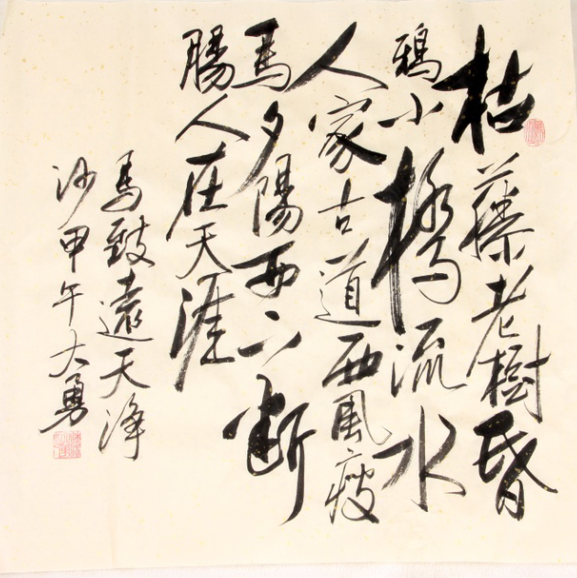 枯藤老樹昏
鴉小橋流水
人家古道西風瘦
馬夕陽西下斷
腸人在天涯
馬致遠天淨
沙甲午大勇